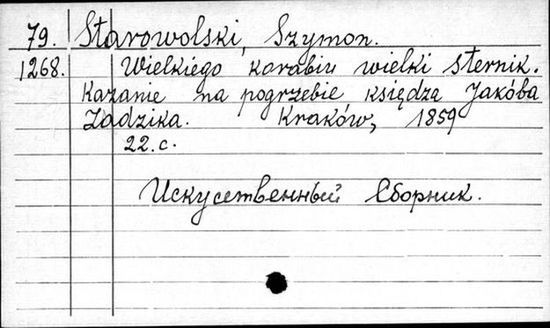 79. Starowolski, Szymon.
1268. Wielkiego karabiu wielki sternik.
Kazanie na pogrzebie księdza Jakóba
Zadzika. Kraków, 1859
22.c.
Искусственный Сборник.